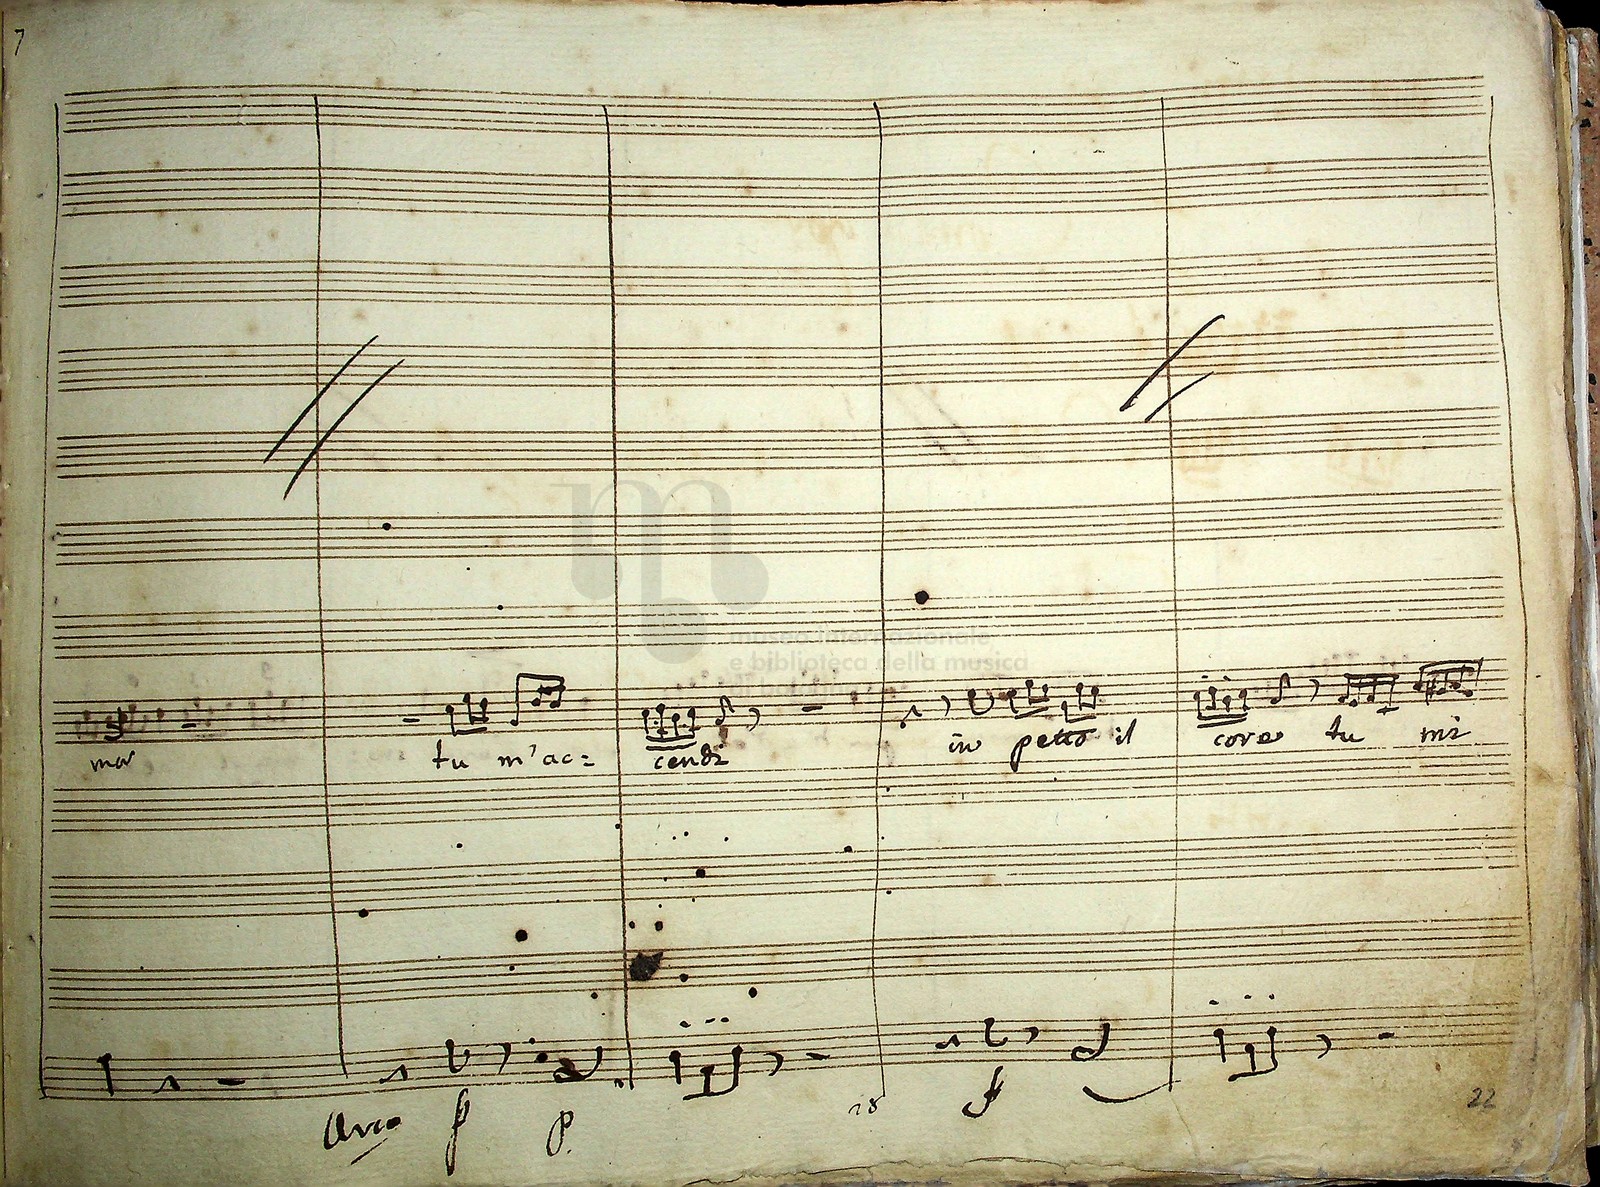 7
museo internazionale
e biblioteca della musica
mor
tu m'ac= cendi in petto il core tu mi
Arco f p. f
22